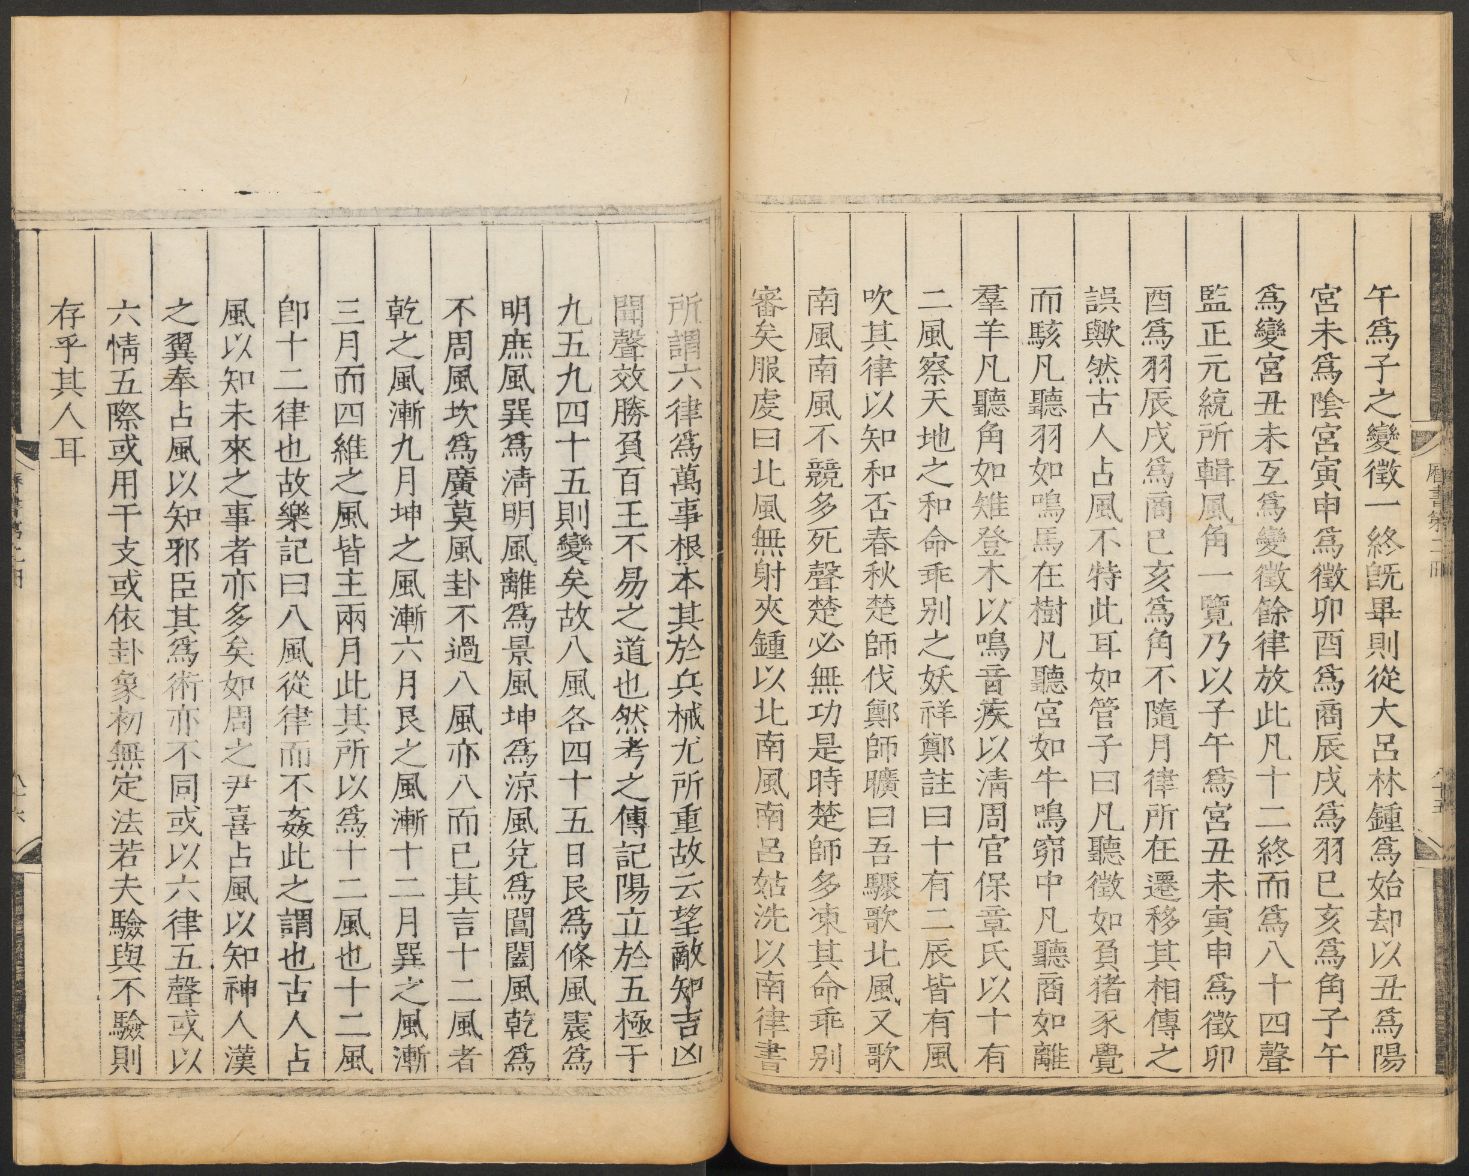 午爲子之變徵一終旣畢則從大呂林鍾爲始却以丑爲陽
宮未爲陰宮寅申爲徵卯酉爲商辰戌爲羽巳亥爲角子午
爲變宮丑未互爲變徵餘律放此凡十二終而爲八十四聲
監正元統所輯風角一覽乃以子午爲宮丑未寅申爲徵卯
酉爲羽辰戌爲商巳亥爲角不隨月律所在遷移其相傳之
誤歟然古人占風不特此耳如管子曰凡聽徵如負猪豕覺
而駭凡聽羽如鳴馬在樹凡聽宮如牛鳴窌中凡聽商如離
羣羊凡聽角如雉登木以鳴音疾以淸周官保章氏以十有
二風察天地之和命乖别之妖祥鄭註曰十有二辰皆有風
吹其律以知和否春秋楚師伐鄭師曠曰吾驟歌北風又歌
南風南風不競多死聲楚必無功是時楚師多凍其命乖别
審矣服虔曰北風無射夾鍾以北南風南呂姑洗以南律書
所謂六律爲萬事根本其於兵械尤所重故云望敵知吉凶
聞聲效勝負百王不易之道也然考之傳記陽立於五極于
九五九四十五則變矣故八風各四十五日艮爲條風震爲
明庶風巽爲淸明風離爲景風坤爲涼風兊爲閶闔風乾爲
不周風坎爲廣莫風卦不過八風亦八而已其言十二風者
乾之風漸九月坤之風漸六月艮之風漸十二月巽之風漸
三月而四維之風皆主兩月此其所以爲十二風也十二風
卽十二律也故樂記曰八風從律而不姦此之謂也古人占
風以知未來之事者亦多矣如周之尹喜占風以知神人漢
之翼奉占風以知邪臣其爲術亦不同或以六律五聲或以
六情五際或用干支或依卦象初無定法若夫驗與不驗則
存乎其人耳